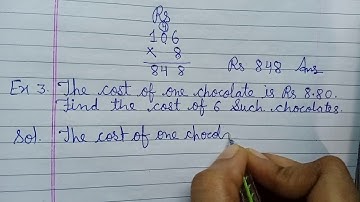 Rs
4
106
× 8
848 Rs 848 Ans
Ex 3. The cost of one chocolate is Rs 8.80.
Find the cost of 6 such chocolates.
Sol. The cost of one chocol